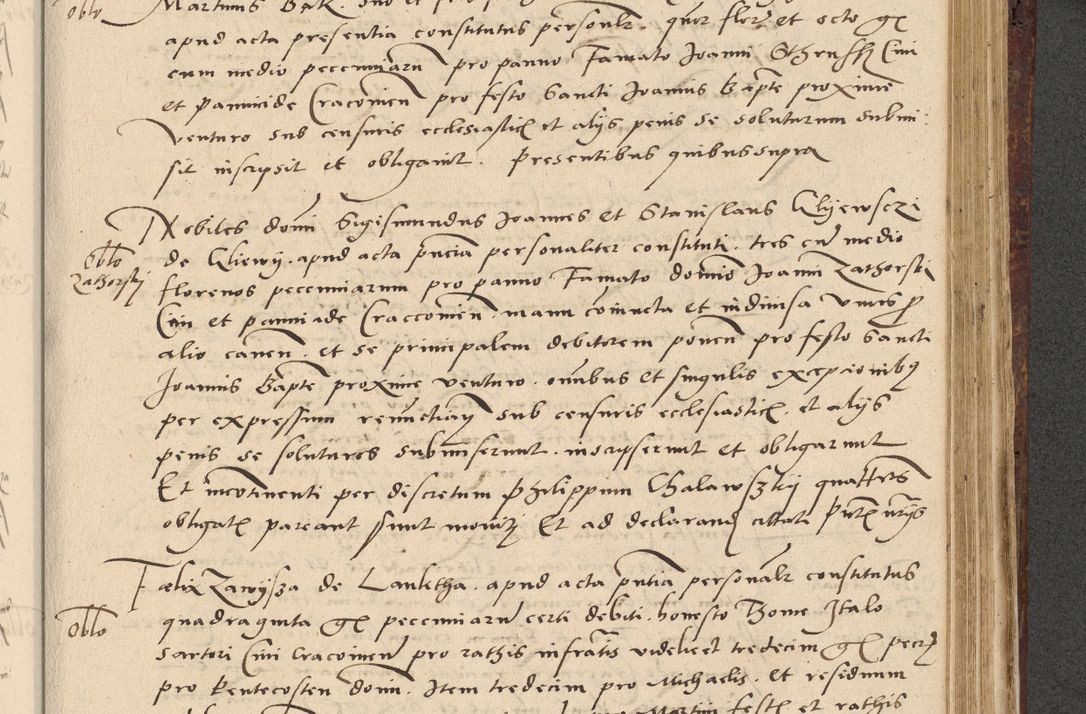 Oblo
apud acta presentia constitutus personalr. quor flor et octo gr
cum medio pecuniaru pro panno Famato Joanni Sthrussk Civi
et pannicide Cracovien pro festo Sancti Joannis Bapte proxime
venturo sub censuris ecclesiastic et alijs penis se soluturum submi:
sit inscripsit et obligavit. Presentibus quibus supra
Nobiles domi Sigismundus Joannes et Stanislaus Kljewsczi
Oblo
Zathorskj
de Kliewy. apud acta pncia personaliter constituti. tres cu medio
florenos pecuniarum pro panno Famato domino Joanni Zathorski
Civi et pannicide Craccovien. manu coniucta et indivisa unus p
alio caven. et se principalem debitorem ponen pro festo Sancti
Joannis Bapte proxime venturo. omibus et singulis excepcionibq
per expressum renuctiatj sub censuris ecclesiastic. et alijs
penis se solutures submiserunt. inscripserunt et obligarunt
Et incotinenti per discretum Philippum Chalawskij quatters
obligats pareant sunt monitj Et ad declarand citati Pntn utrijs
Oblo
Fælix Zawysza de Lanktha. apud acta pntia personalr constitutus
quadraginta gr pecuniaru certi debiti. honesto Thome Italo
sartori Civi Cracovien pro rathis infratis videlicet tredecim gr pecu
pro Pentecosten domi. Item tredecim pro Michaelis. et residuum